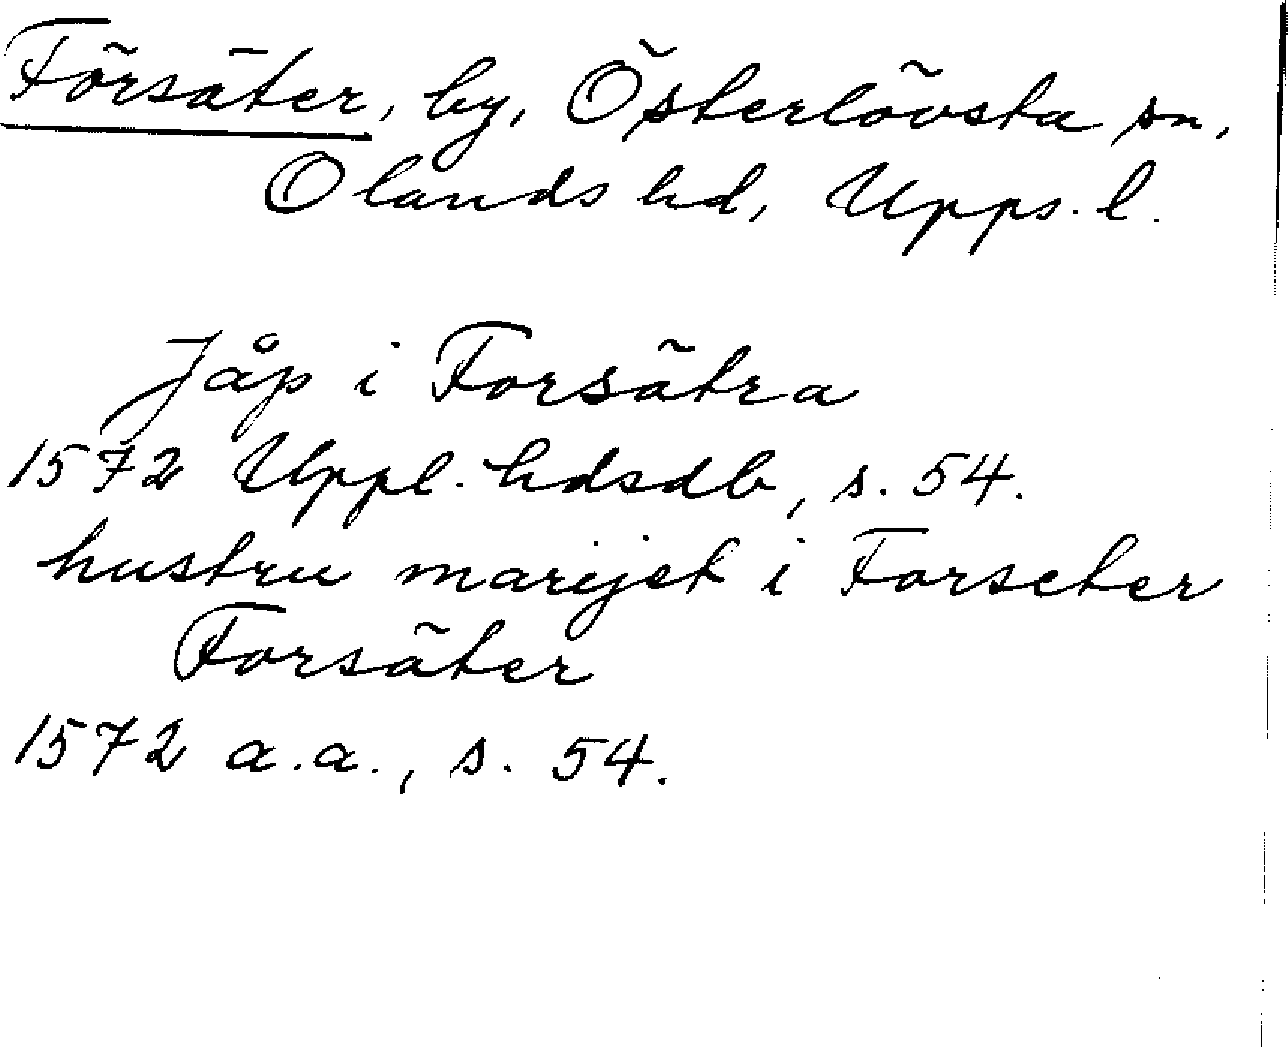 Försäter, by, Österlövsta sn,
Olands hd, Upps. l.
Jåp i Forsätra
1572 Uppl. hdsdb, s. 54.
hustru marijet i Forseter
Forsäter
1572 a.a., s. 54.